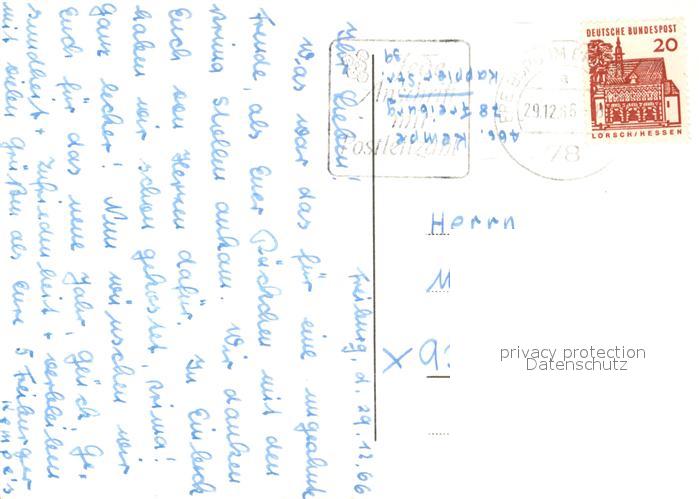 Freiburg, d. 29.12.66
Ihr Lieben!
Was war das für eine ungeahnte
Freude, als Euer Päckchen mit den
prima Stollen ankam. Wir danken
Euch von Herzen dafür. Ein Eclair
haben wir schon gekostet, prima!
ganz lecker! Nun wünschen wir
Euch für das neue Jahr, Glück, Ge-
sundheit + Zufriedenheit + verbleiben
mit vielen Grüßen als eure 5 Freiburger
Kempe's
Abs. Kempe
78 Freiburg
Kappler Str.
59
Postleitzahl
29.12.66
78
DEUTSCHE BUNDESPOST
20
LORSCH/HESSEN
Herrn
M
x 9
privacy protection
Datenschutz